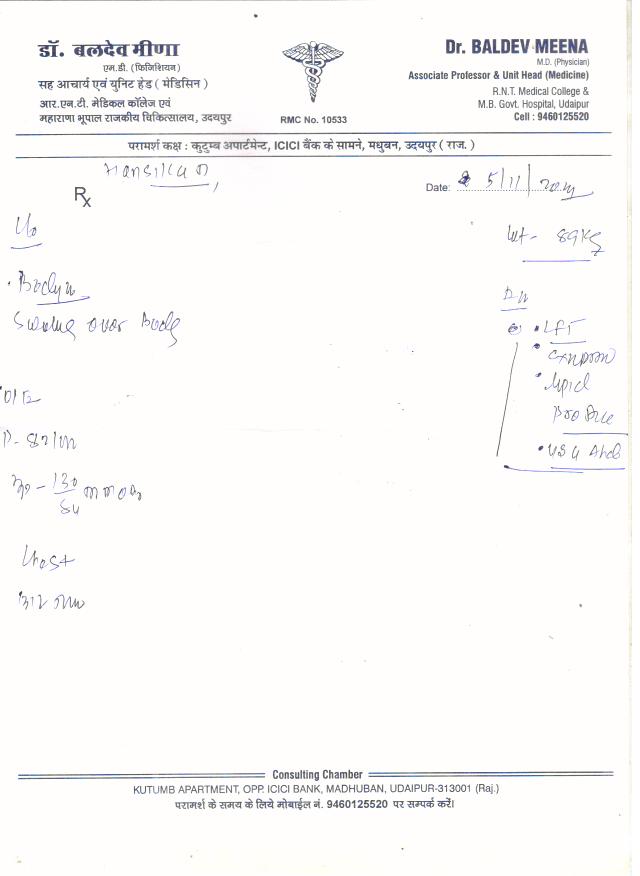 डॉ. बलदेव मीणा
एम.डी. (फिजिशियन)
सह आचार्य एवं युनिट हेड ( मेडिसिन )
आर.एन.टी. मेडिकल कॉलेज एवं
महाराणा भूपाल राजकीय चिकित्सालय, उदयपुर
RMC No. 10533
Dr. BALDEV MEENA
M.D. (Physician)
Associate Professor & Unit Head (Medicine)
R.N.T. Medical College &
M.B. Govt. Hospital, Udaipur
Cell : 9460125520
परामर्श कक्ष : कुटुम्ब अपार्टमेन्ट, ICICI बैंक के सामने, मधुबन, उदयपुर ( राज. )
Rx
Date: 5/11/
Wt - 89 Kg
over Body
• LFT
• USG Abd
O/E
P - 82/m
130/84
Chest
Consulting Chamber
KUTUMB APARTMENT, OPP. ICICI BANK, MADHUBAN, UDAIPUR-313001 (Raj.)
परामर्श के समय के लिये मोबाईल नं. 9460125520 पर सम्पर्क करें।